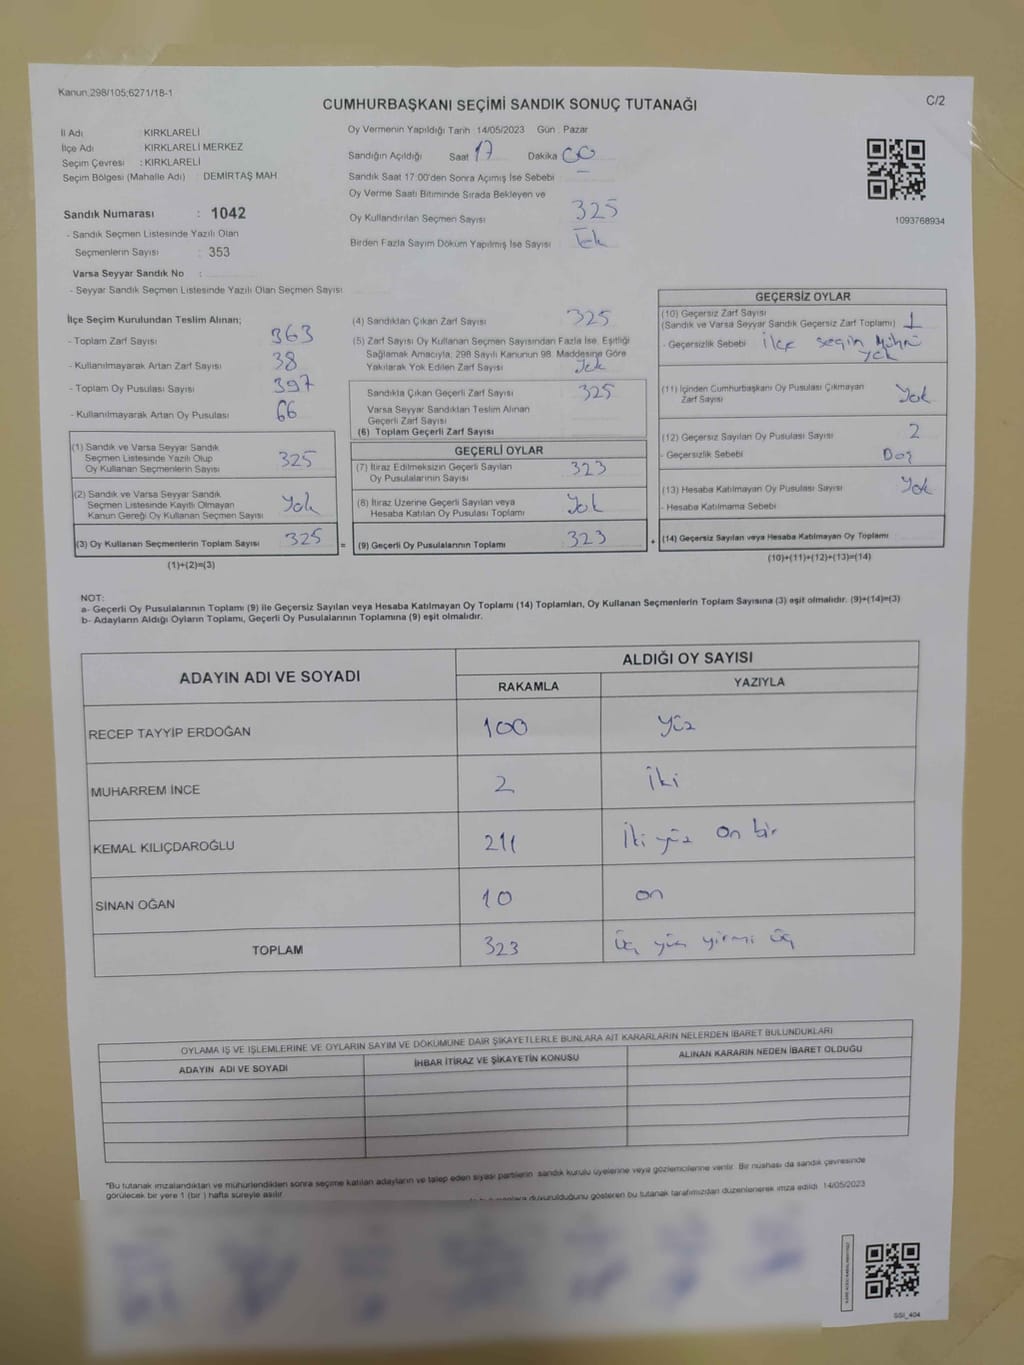 Kanun.298/105;6271/18-1
CUMHURBAŞKANI SEÇİMİ SANDIK SONUÇ TUTANAĞI
C/2
İl Adı : KIRKLARELİ
İlçe Adı : KIRKLARELİ MERKEZ
Seçim Çevresi : KIRKLARELİ
Seçim Bölgesi (Mahalle Adı) : DEMİRTAŞ MAH.
Sandık Numarası : 1042
- Sandık Seçmen Listesinde Yazılı Olan
Seçmenlerin Sayısı : 353
Varsa Seyyar Sandık No :
- Seyyar Sandık Seçmen Listesinde Yazılı Olan Seçmen Sayısı
Oy Vermenin Yapıldığı Tarih 14/05/2023 Gün : Pazar
Sandığın Açıldığı Saat 17 Dakika 00
Sandık Saat 17:00'den Sonra Açımış İse Sebebi —
Oy Verme Saati Bitiminde Sırada Bekleyen ve
Oy Kullandırılan Seçmen Sayısı 325
Birden Fazla Sayım Döküm Yapılmış İse Sayısı Tek
1093768934
İlçe Seçim Kurulundan Teslim Alınan;
- Toplam Zarf Sayısı 363
- Kullanılmayarak Artan Zarf Sayısı 38
- Toplam Oy Pusulası Sayısı 397
- Kullanılmayarak Artan Oy Pusulası 66
(1) Sandık ve Varsa Seyyar Sandık
Seçmen Listesinde Yazılı Olup
Oy Kullanan Seçmenlerin Sayısı 325
(2) Sandık ve Varsa Seyyar Sandık
Seçmen Listesinde Kayıtlı Olmayan
Kanun Gereği Oy Kullanan Seçmen Sayısı Yok
(3) Oy Kullanan Seçmenlerin Toplam Sayısı 325 =
(1)+(2)=(3)
(4) Sandıktan Çıkan Zarf Sayısı 325
(5) Zarf Sayısı Oy Kullanan Seçmen Sayısından Fazla İse, Eşitliği
Sağlamak Amacıyla, 298 Sayılı Kanunun 98. Maddesine Göre
Yakılarak Yok Edilen Zarf Sayısı Yok
Sandıkta Çıkan Geçerli Zarf Sayısı 325
Varsa Seyyar Sandıktan Teslim Alınan
Geçerli Zarf Sayısı
(6) Toplam Geçerli Zarf Sayısı
GEÇERLİ OYLAR
(7) İtiraz Edilmeksizin Geçerli Sayılan
Oy Pusulalarının Sayısı 323
(8) İtiraz Üzerine Geçerli Sayılan veya
Hesaba Katılan Oy Pusulası Toplamı Yok
(9) Geçerli Oy Pusulalarının Toplamı 323 +
GEÇERSİZ OYLAR
(10) Geçersiz Zarf Sayısı
(Sandık ve Varsa Seyyar Sandık Geçersiz Zarf Toplamı) 1
- Geçersizlik Sebebi ilçe seçim Mührü
yok
(11) İçinden Cumhurbaşkanı Oy Pusulası Çıkmayan
Zarf Sayısı Yok
(12) Geçersiz Sayılan Oy Pusulası Sayısı 2
- Geçersizlik Sebebi Boş
(13) Hesaba Katılmayan Oy Pusulası Sayısı Yok
- Hesaba Katılmama Sebebi
(14) Geçersiz Sayılan veya Hesaba Katılmayan Oy Toplamı
(10)+(11)+(12)+(13)=(14)
NOT:
a- Geçerli Oy Pusulalarının Toplamı (9) ile Geçersiz Sayılan veya Hesaba Katılmayan Oy Toplamı (14) Toplamları, Oy Kullanan Seçmenlerin Toplam Sayısına (3) eşit olmalıdır. (9)+(14)=(3)
b- Adayların Aldığı Oyların Toplamı, Geçerli Oy Pusulalarının Toplamına (9) eşit olmalıdır.
ADAYIN ADI VE SOYADI
ALDIĞI OY SAYISI
RAKAMLA YAZIYLA
RECEP TAYYİP ERDOĞAN 100 yüz
MUHARREM İNCE 2 iki
KEMAL KILIÇDAROĞLU 211 iki yüz on bir
SİNAN OĞAN 10 on
TOPLAM 323 üç yüz yirmi üç
OYLAMA İŞ VE İŞLEMLERİNE VE OYLARIN SAYIM VE DÖKÜMÜNE DAİR ŞİKAYETLERLE BUNLARA AİT KARARLARIN NELERDEN İBARET BULUNDUKLARI
ADAYIN ADI VE SOYADI İHBAR İTİRAZ VE ŞİKAYETİN KONUSU ALINAN KARARIN NEDEN İBARET OLDUĞU
*Bu tutanak imzalandıktan ve mühürlendikten sonra seçime katılan adayların ve talep eden siyasi partilerin sandık kurulu üyelerine veya gözlemcilerine verilir. Bir nüshası da sandık çevresinde
görülecek bir yere 1 (bir ) hafta süreyle asılır.
duyurulduğunu gösteren bu tutanak tarafımızdan düzenlenerek imza edildi. 14/05/2023
SSI_404